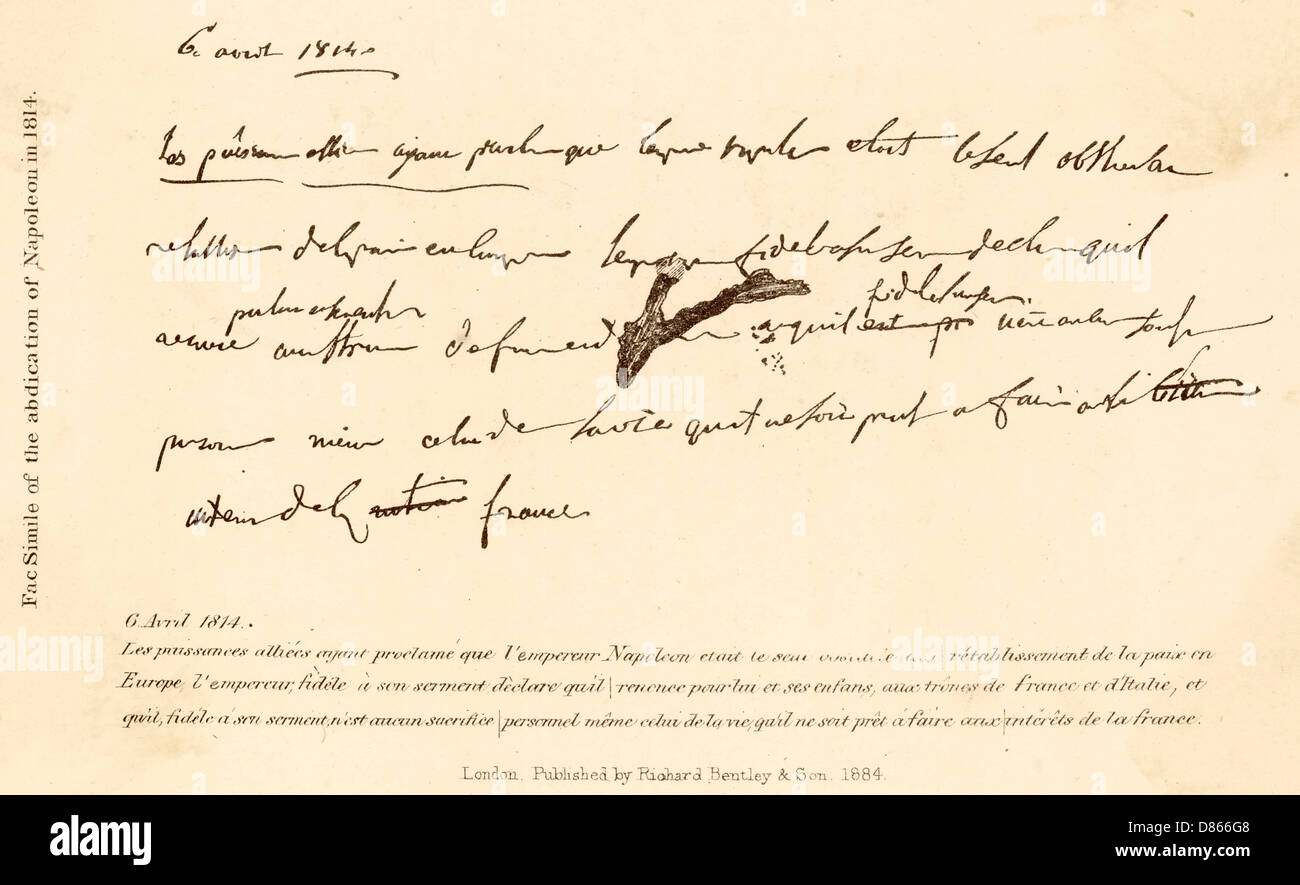 6 avril 1814.
Les puissances alliées ayant proclamé que l'empereur etoit le seul obstacle
retablissement de la paix en europe l'empereur fidel a son serment declare quil
pour lui et ses enfants fidel a son serment
renonce aux trones de france et quil est
personel même celui de la vie quil ne soit pret a faire aux
interets de la nation france
Fac Simile of the abdication of Napoleon in 1814.
6 Avril 1814.
Les puissances alliées ayant proclamé que l'empereur Napoleon etait le seul rétablissement de la paix en
Europe, l'empereur, fidèle à son serment dèclare qu'il | renonce pour lui et ses enfans, aux trônes de france et d'Italie, et
qu'il, fidéle à son serment, n'est aucun sacrifice | personnel même celui de la vie, qu'il ne soit prêt à faire aux | intérêts de la france.
London, Published by Richard Bentley & Son. 1884.
alamy
Image ID: D866G8
www.alamy.com